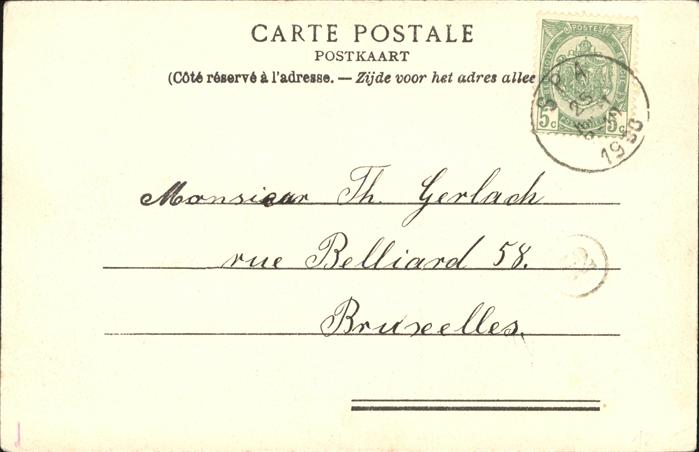 CARTE POSTALE
POSTKAART
(Côté réservé à l'adresse. — Zijde voor het adres allee
POSTES
5c 5c
SPA
25
1900
Monsieur Th. Gerlach
rue Belliard 58.
Bruxelles.